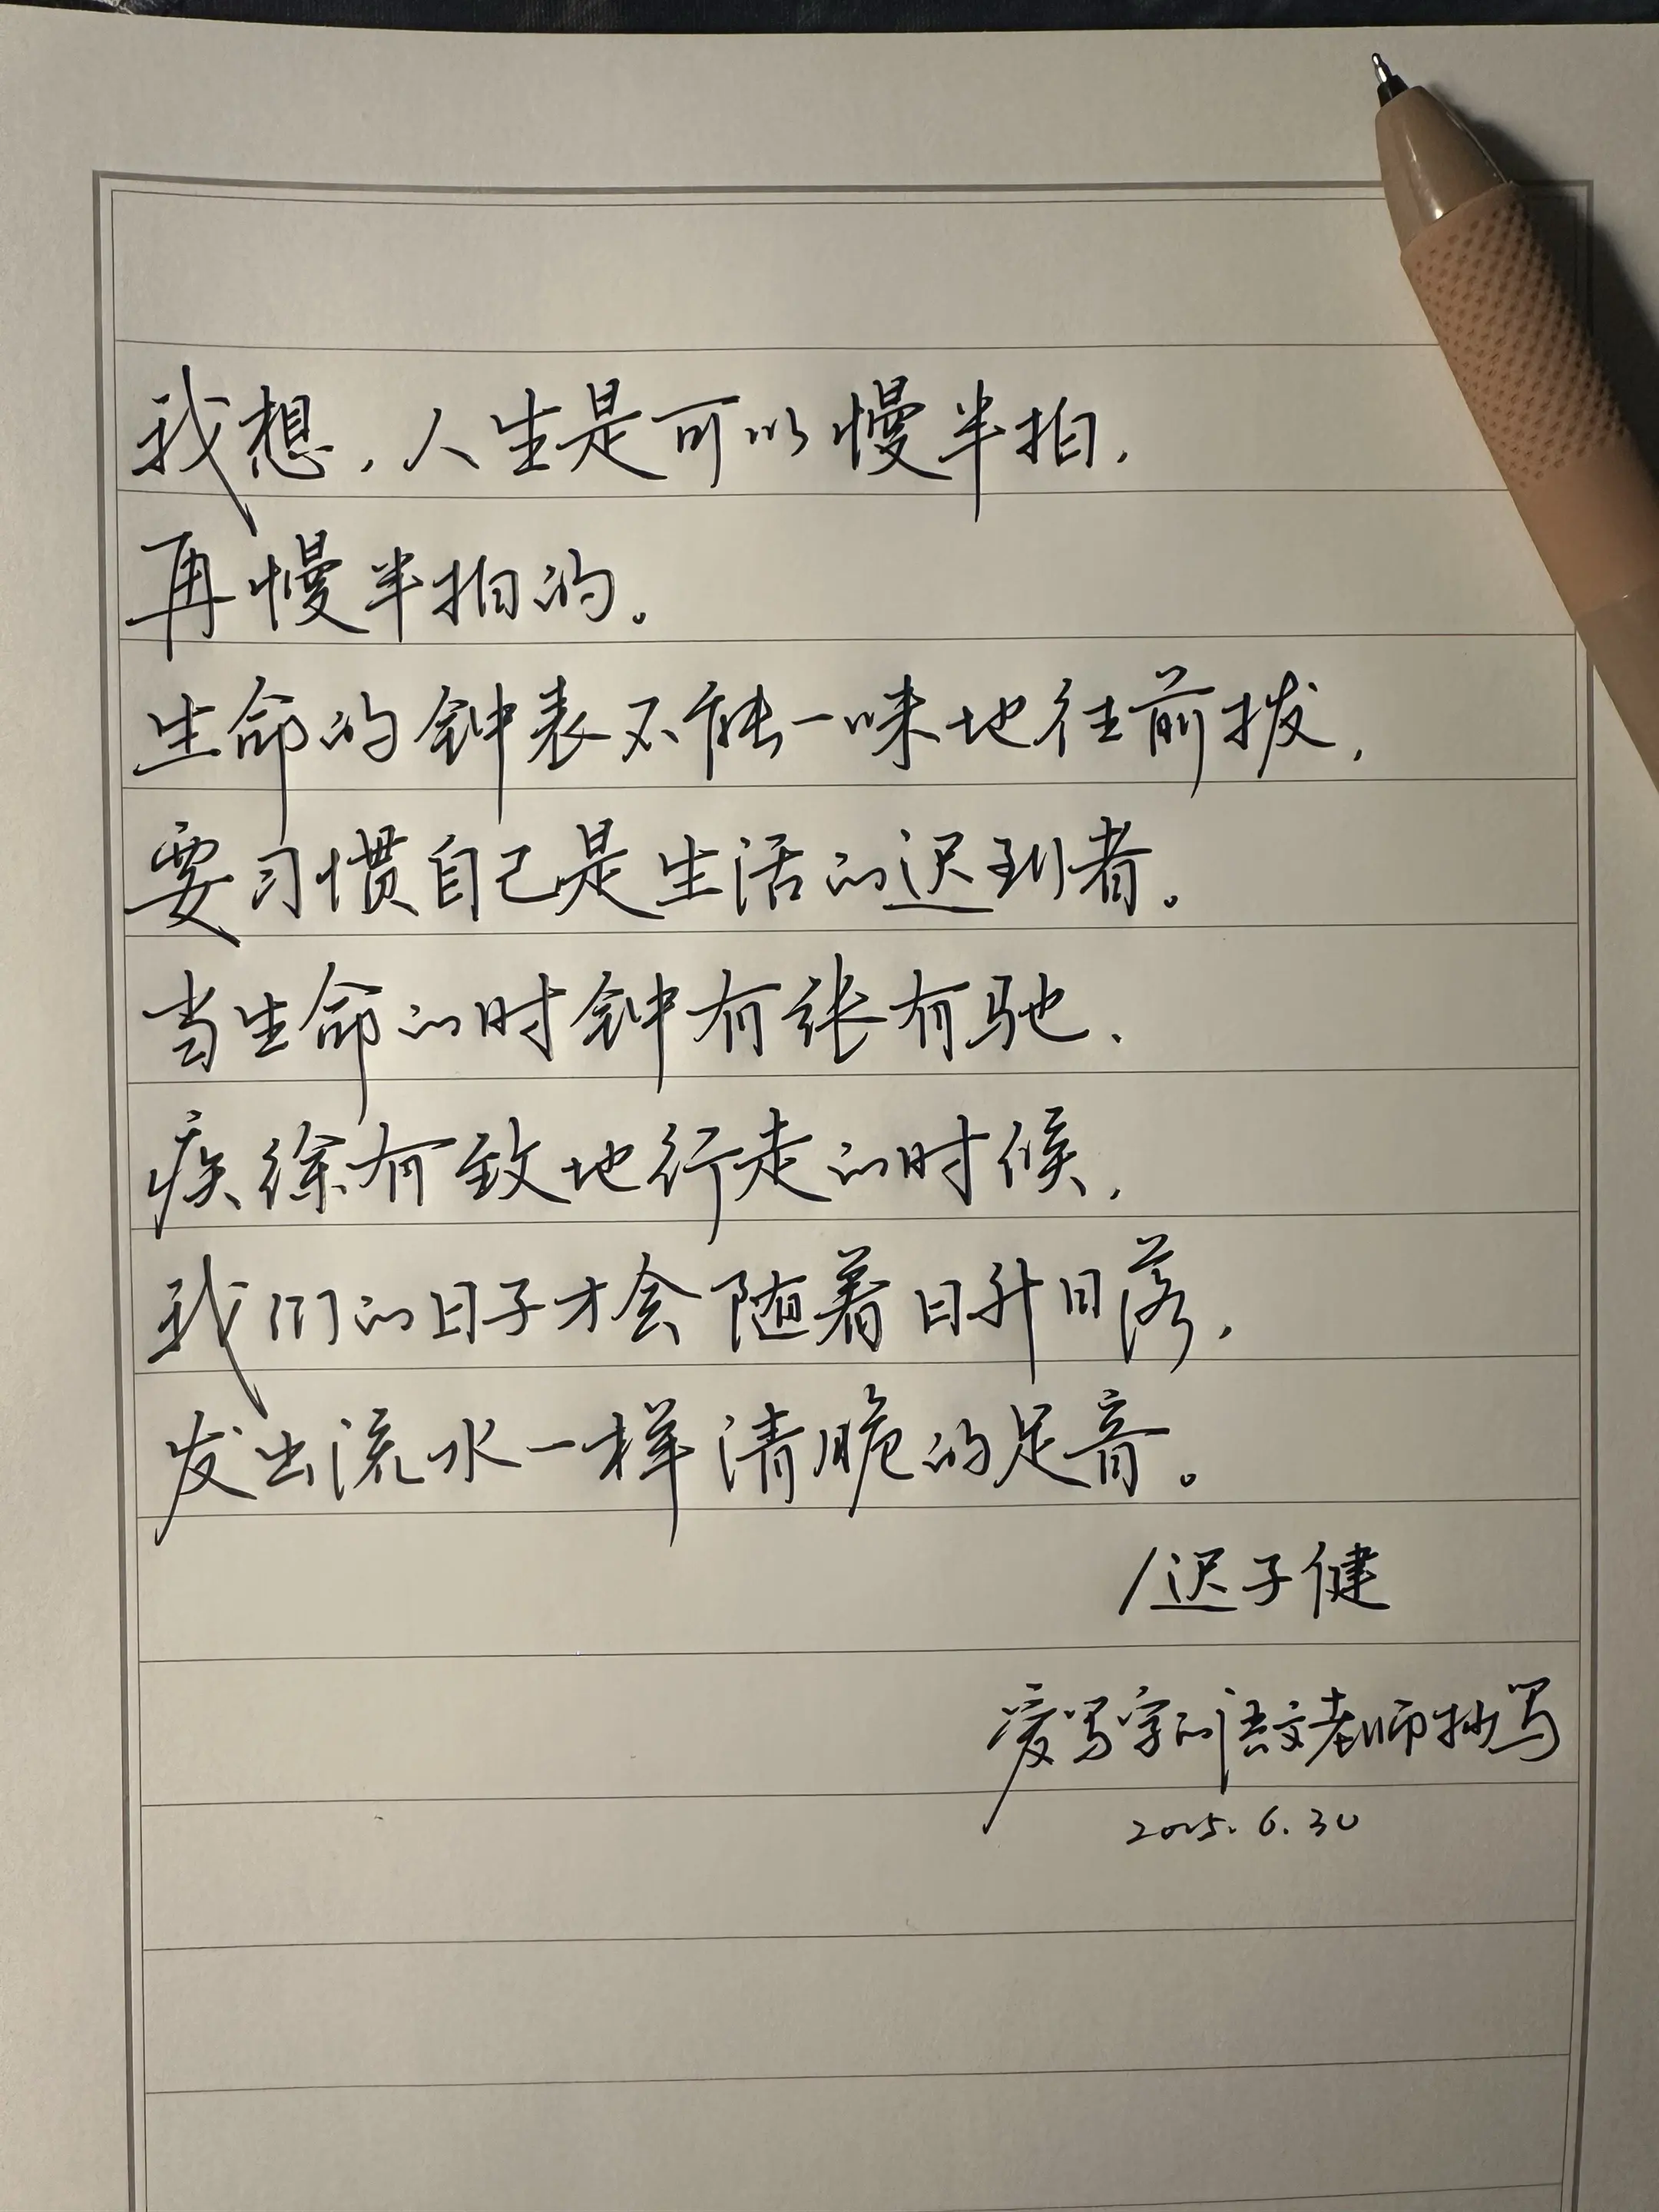 我想，人生是可以慢半拍，
再慢半拍的。
生命的钟表不能一味地往前拨，
要习惯自己是生活的迟到者。
当生命的时钟有张有驰，
疾徐有致地行走的时候，
我们的日子才会随着日升日落，
发出流水一样清脆的足音。
/迟子健
爱写字的语文老师抄写
2025.6.30